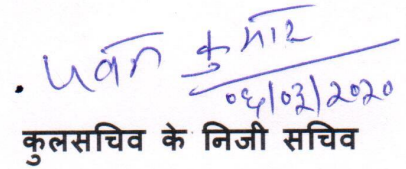 पवन कुमार
०६/०३/२०२०
कुलसचिव के निजी सचिव